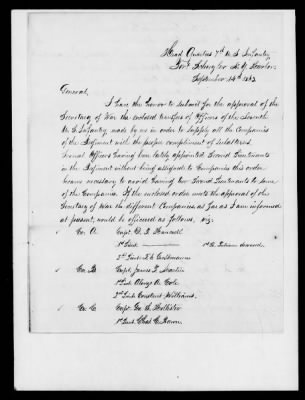 Head Quarters 7th U.S. Infantry
Fort Schuyler N.Y. Harbor
September 14th 1863
General,
I have the honor to submit for the approval of the
Secretary of War the enclosed transfers of Officers of the Seventh
U.S. Infantry, made by me in order to supply all the Companies
of the Regiment with the proper compliment of subalterns.
Several Officers having been lately appointed Second Lieutenants
in the Regiment without being assigned to Companies this order
became necessary to avoid having two Second Lieutenants to some
of the Companies. If the enclosed order meets the approval of the
Secretary of War the different Companies, as far as I am informed
at present, would be officered as follows, viz:
Co. A Capt. D. P. Hancock
1st Lieut
2nd Lieut
Co. B Capt. James P. Martin
1st Lieut Alonzo A. Cole
2nd Lieut Constant Williams.
Co. C Capt. Geo. S. Hollister
1st Lieut Chas. C. Rawn